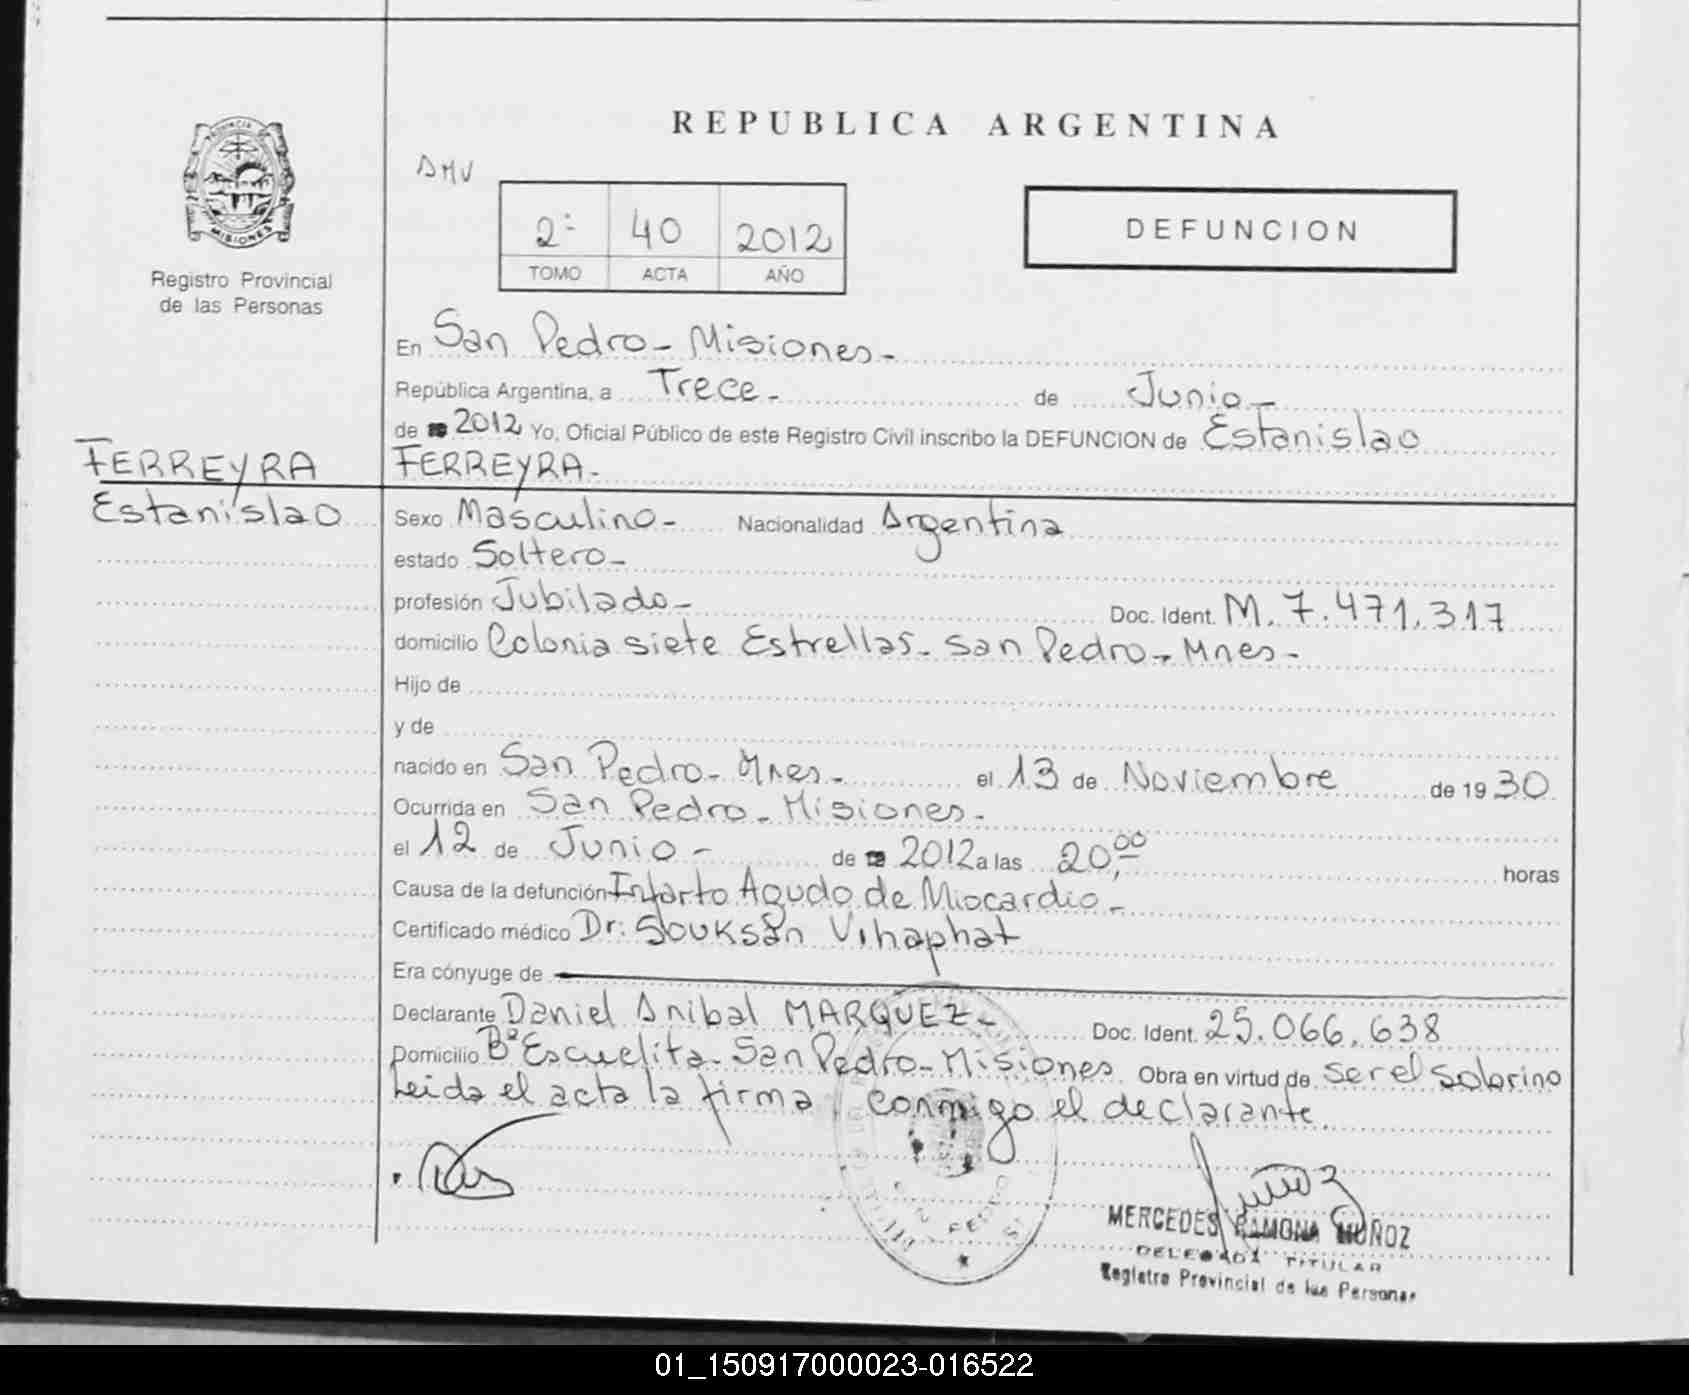 REPUBLICA ARGENTINA
PROVINCIA
MISIONES
Registro Provincial
de las Personas
DMV
2º 40 2012
TOMO ACTA AÑO
DEFUNCION
En San Pedro - Misiones -
República Argentina, a Trece - de Junio -
de 2012 Yo, Oficial Público de este Registro Civil inscribo la DEFUNCION de Estanislao
FERREYRA
FERREYRA -
Estanislao
Sexo Masculino - Nacionalidad Argentina
estado Soltero -
profesión Jubilado - Doc. Ident. M. 7.471.317
domicilio Colonia siete Estrellas - San Pedro - Mnes -
Hijo de
y de
nacido en San Pedro - Mnes - el 13 de Noviembre de 1930
Ocurrida en San Pedro - Misiones -
el 12 de Junio - de 2012 a las 20,00 horas
Causa de la defunción Infarto Agudo de Miocardio -
Certificado médico Dr: Souksan Vihaphat
Era cónyuge de
Declarante Daniel Anibal MARQUEZ - Doc. Ident. 25.066.638
Domicilio Bº Escuelita - San Pedro - Misiones. Obra en virtud de ser el sobrino
Leida el acta la firma conmigo el declarante.
MERCEDES RAMONA MUÑOZ
DELEGADA TITULAR
Registro Provincial de las Personas
01_150917000023-016522